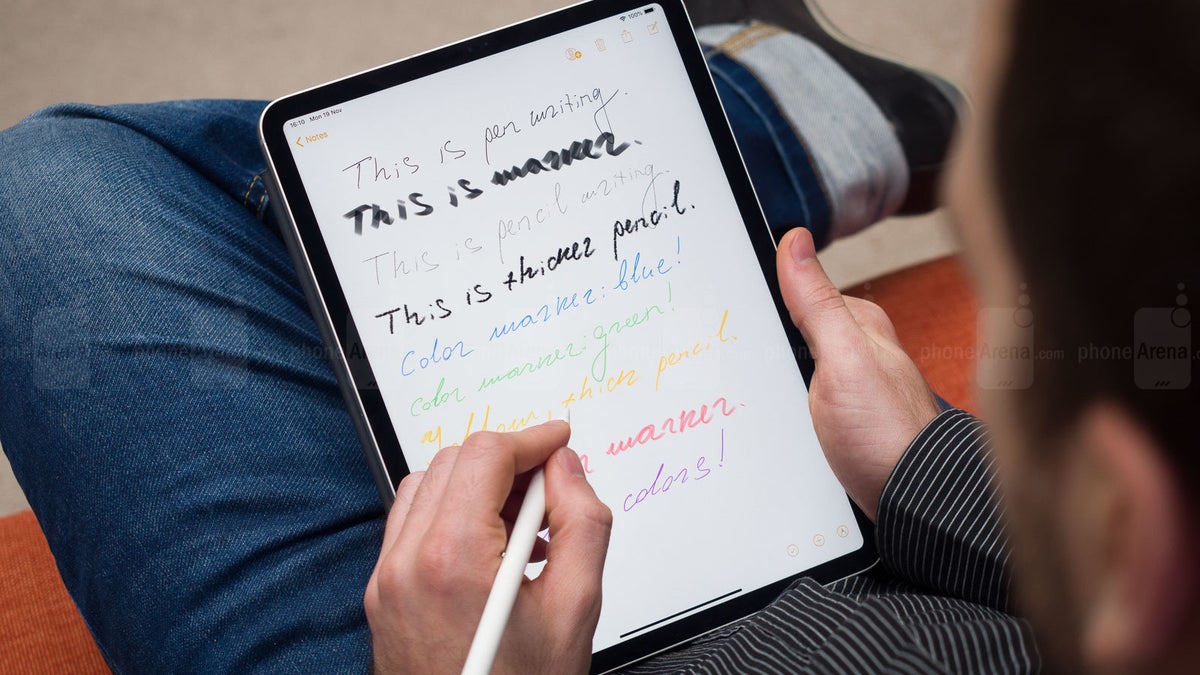 16:10 Mon 19 Nov
100%
Notes
This is pen writing.
This is marker.
This is pencil writing.
This is thicker pencil.
Color marker: blue!
color marker: green!
Yellow, thick pencil.
marker.
colors!
phoneArena.com phoneArena